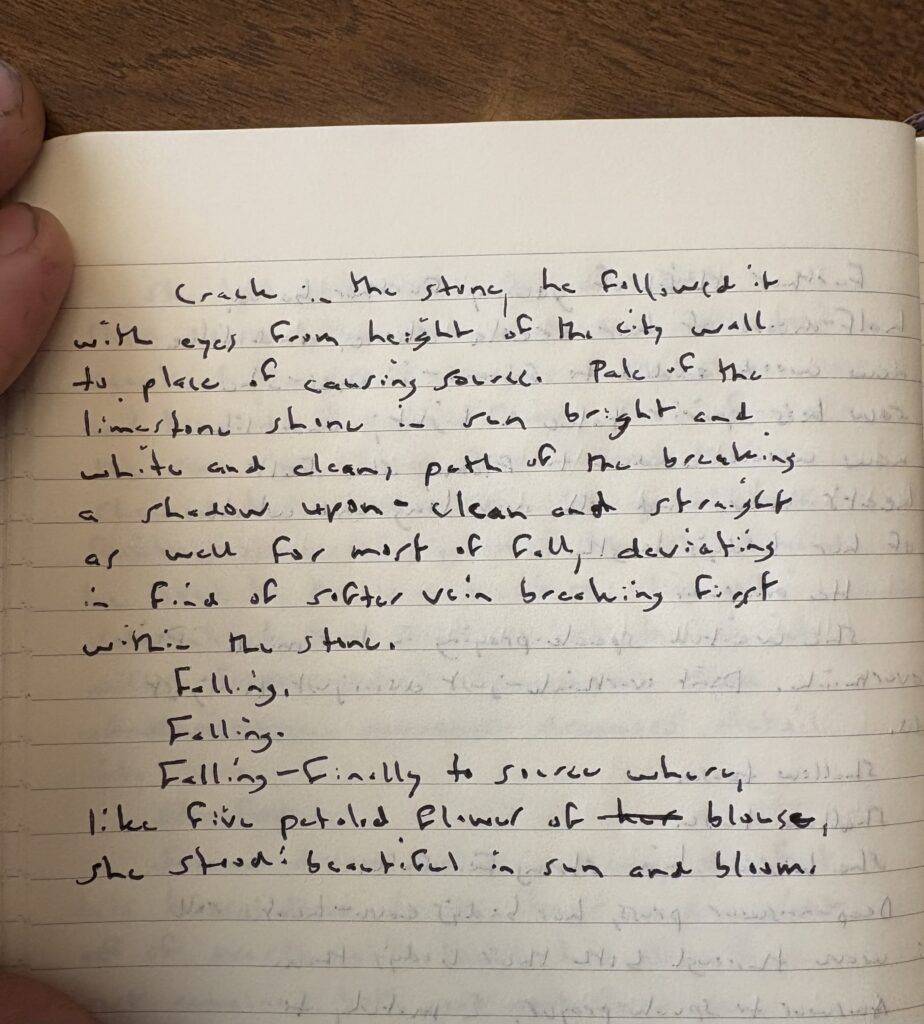 Crack in the stone, he followed it
with eyes from height of the city wall
to place of causing source. Pale of the
limestone shone in sun bright and
white and clean, path of the breaking
a shadow upon - clean and straight
as well for most of fall, deviating
in find of softer vein breaking first
within the stone.
Falling.
Falling.
Falling - finally to source where,
like five petaled flower of her blouse,
she stood: beautiful in sun and bloom.